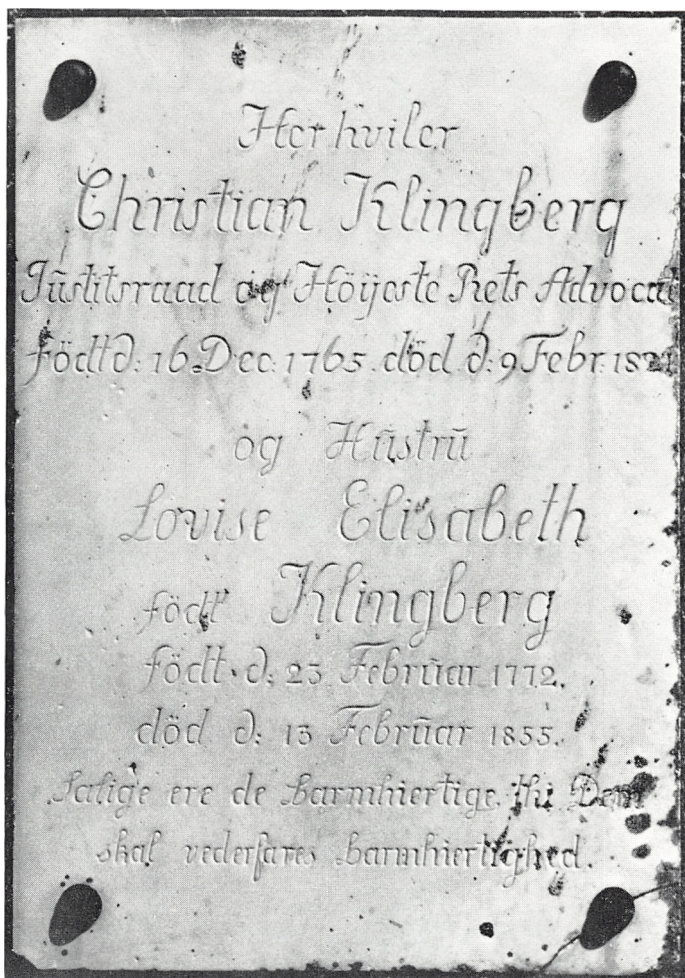 Her hviler
Christian Klingberg
Jūstitsraad og Höijeste Rets Advocat
födt d: 16. Dec. 1765. död d: 9 Febr. 1821
og Hūstrū
Lovise Elisabeth
födt Klingberg
födt. d: 23 Februar 1772.
död d: 13 Februar 1855.
Salige ere de barmhiertige. thi Dem
skal vederfares barmhiertighed.